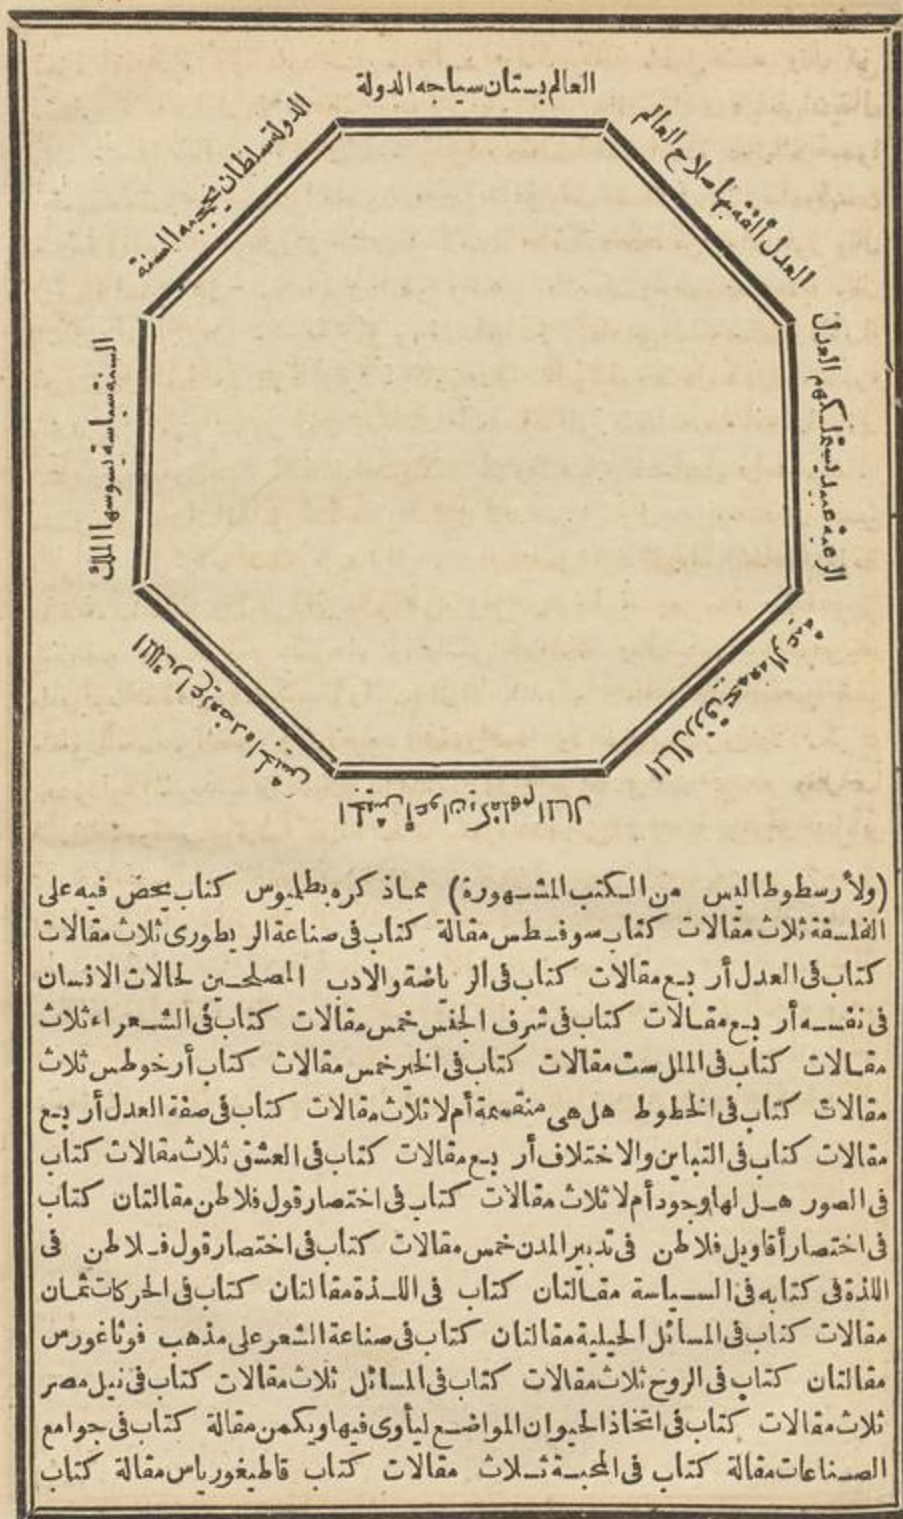 العالم بستان سياجه الدولة
الدولة سلطان تحجبه السنة
السنة سياسة يسوسها الملك
الملك راع يعضده الجيش
الجيش أعوان يكفلهم المال
المال رزق تجمعه الرعية
الرعية عبيد يستملكهم العدل
العدل ألفة بها صلاح العالم
(ولأرسطوطاليس من الكتب المشهورة) مما ذكره بطليوس كتاب يحض فيه على
الفلسفة ثلاث مقالات كتاب سوفسطس مقالة كتاب في صناعة الريطورى ثلاث مقالات
كتاب في العدل أربع مقالات كتاب في الرياضة والادب المصلحين لحالات الانسان
في نفسه أربع مقالات كتاب في شرف الجنس خمس مقالات كتاب في الشعراء ثلاث
مقالات كتاب في الملل ست مقالات كتاب في الخير خمس مقالات كتاب أرخوطس ثلاث
مقالات كتاب في الخطوط هل هي منقسمة أم لا ثلاث مقالات كتاب في صفة العدل أربع
مقالات كتاب في التباين والاختلاف أربع مقالات كتاب في العشق ثلاث مقالات كتاب
في الصور هل لها وجود أم لا ثلاث مقالات كتاب في اختصار قول فلاطن مقالتان كتاب
في اختصار أقاويل فلاطن في تدبير المدن خمس مقالات كتاب في اختصار قول فلاطن في
اللذة في كتابه في السياسة مقالتان كتاب في اللذة مقالتان كتاب في الحركات ثمان
مقالات كتاب في المسائل الحيلية مقالتان كتاب في صناعة الشعر على مذهب فوثاغورس
مقالتان كتاب في الروح ثلاث مقالات كتاب في المسائل ثلاث مقالات كتاب في نيل مصر
ثلاث مقالات كتاب في اتخاذ الحيوان المواضع ليأوى فيها ويكمن مقالة كتاب في جوامع
الصناعات مقالة كتاب في المحبة ثلاث مقالات كتاب قاطيغورياس مقالة كتاب